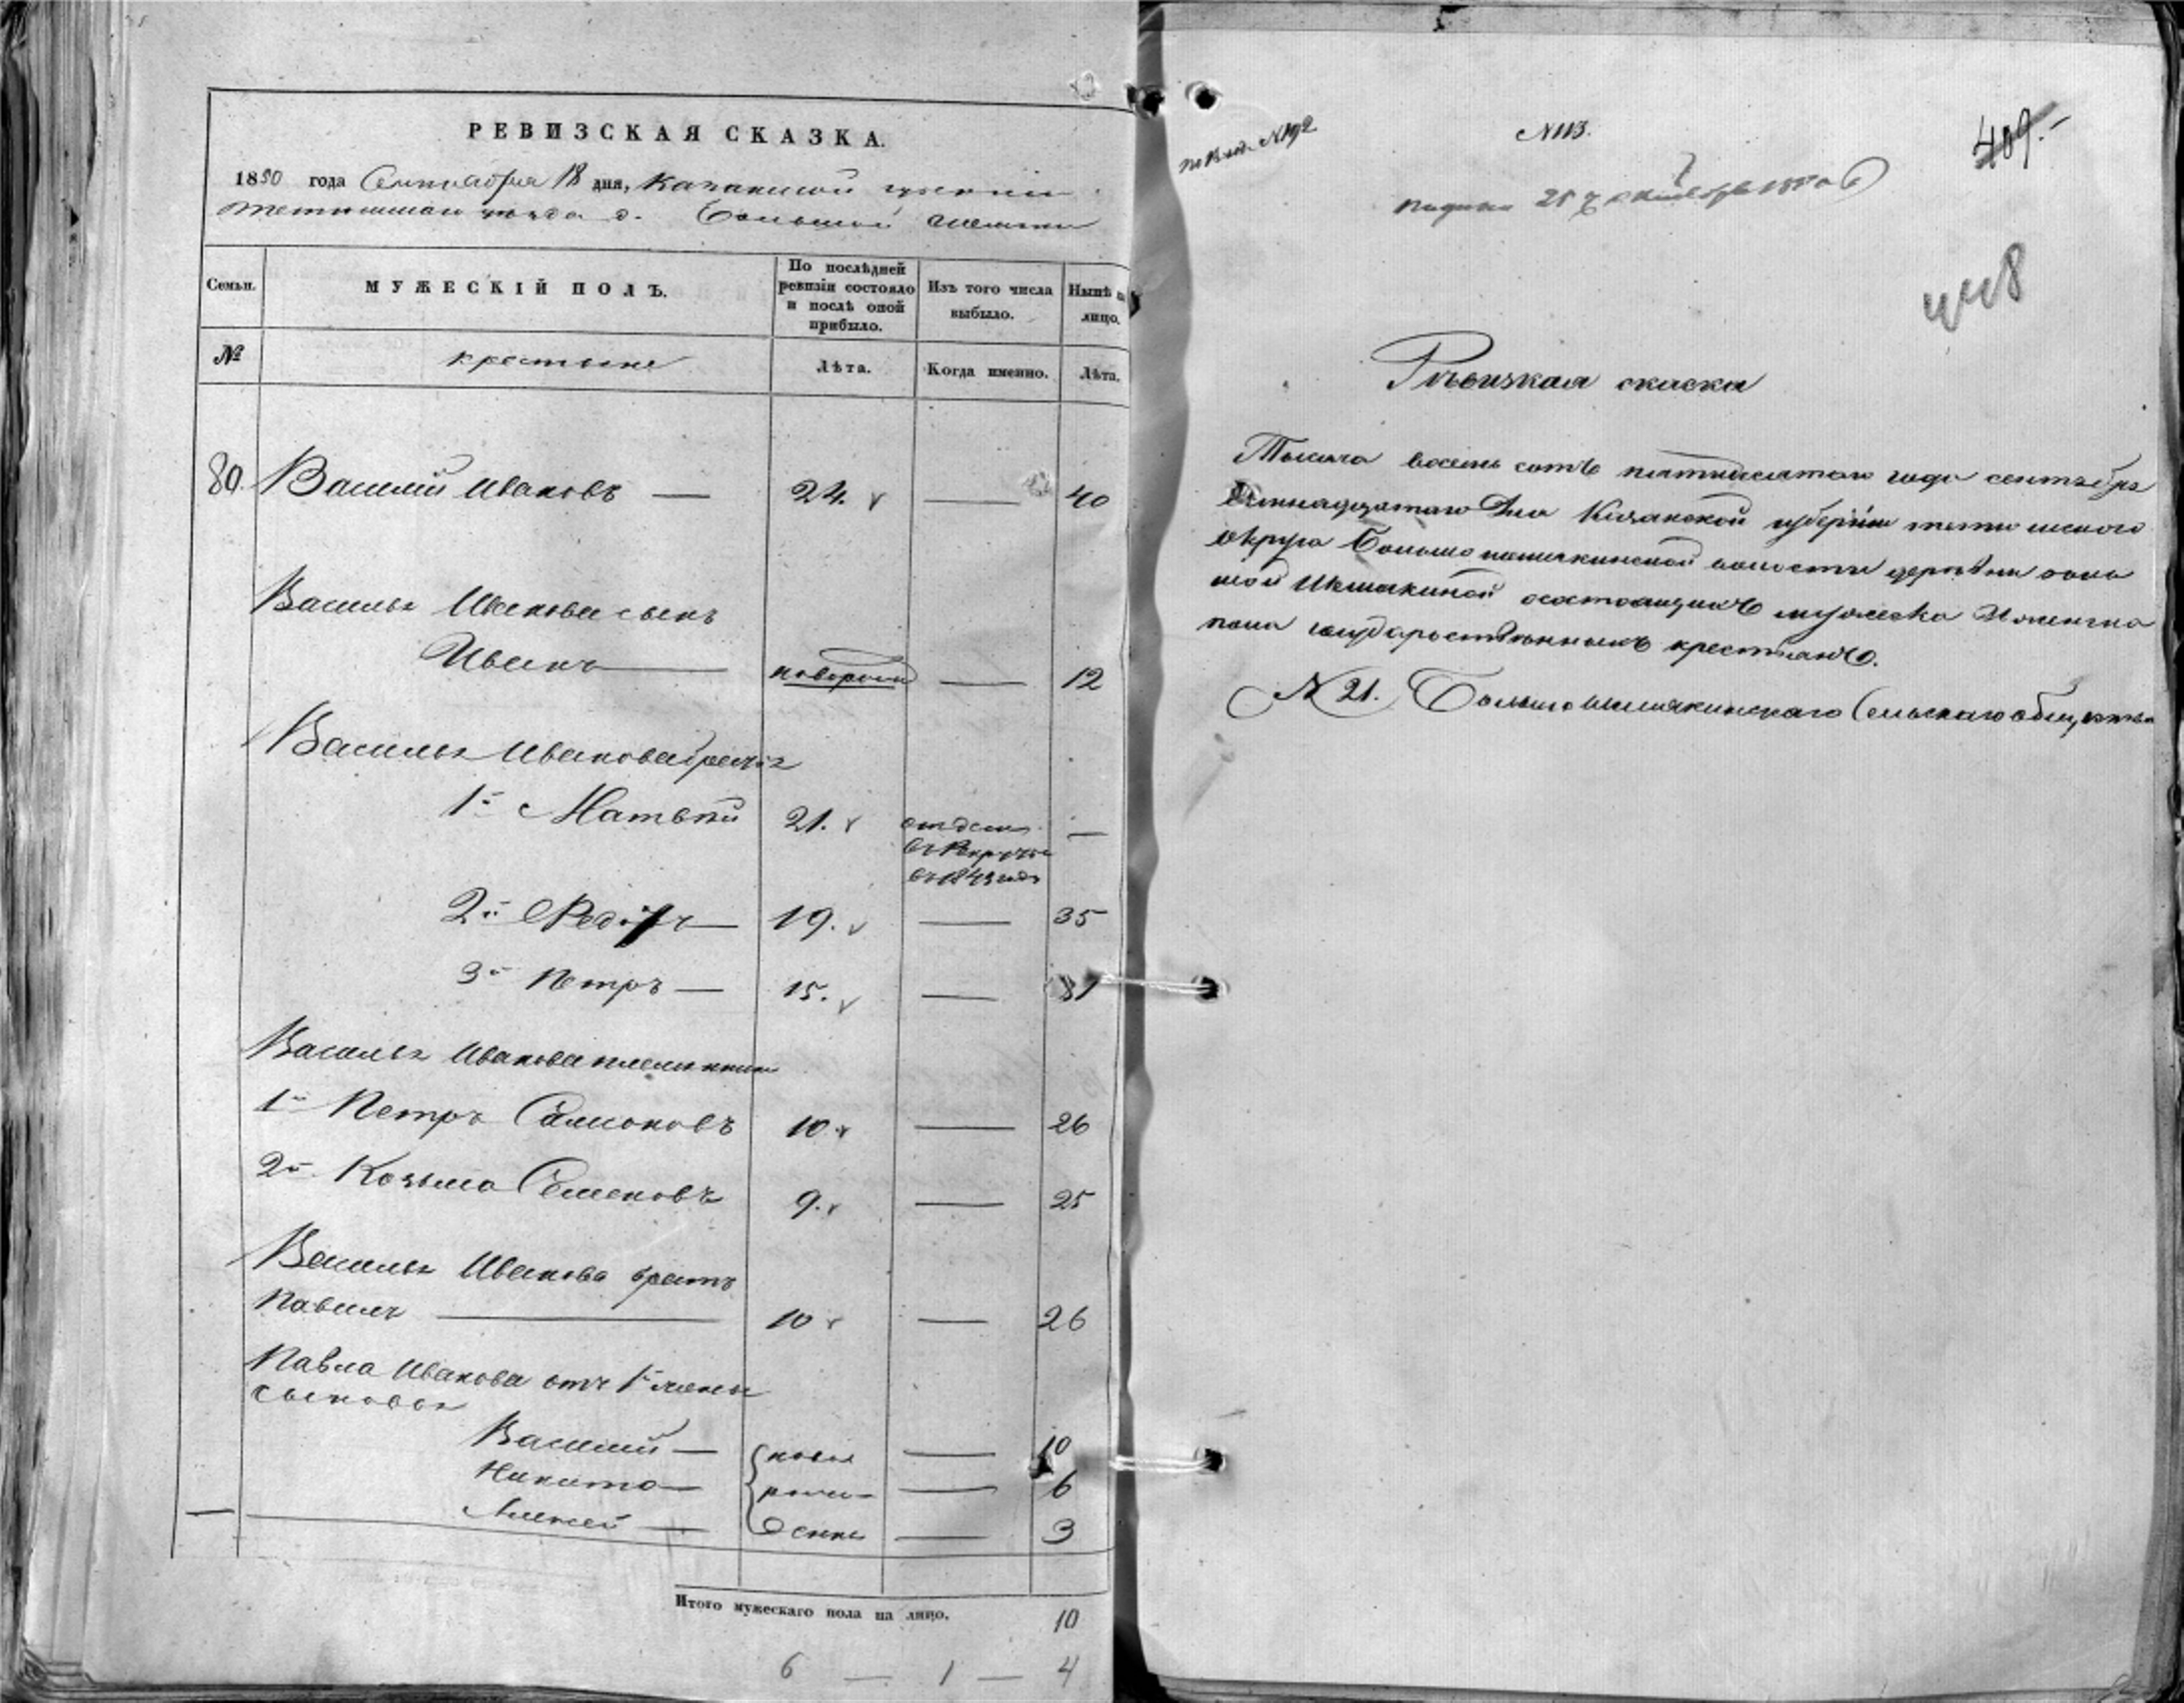 РЕВИЗСКАЯ СКАЗКА.
1850 года Сентября 18 дня, Казанской губернии
Тетюшскаго уѣзда д. Большой
Семьи.
МУЖЕСКІЙ ПОЛЪ.
По послѣдней ревизіи состояло и послѣ оной прибыло.
Изъ того числа выбыло.
Нынѣ на лицо.
№
крестьяне
Лѣта.
Когда именно.
Лѣта.
80. Василий Ивановъ — 24. — 40
Василья Иванова сынъ
Иванъ — новорож — 12
Василья Иванова братья
1й Матвѣй 21. отданъ —
въ Рекруты
въ 1843 годѣ
2й Федоръ — 19. — 35
3й Петръ — 15. — 31
Василья Иванова племянники
1й Петръ Самсоновъ 10 — 26
2й Козьма Семеновъ 9. — 25
Василья Иванова братъ
Павелъ — 10 — 26
Павла Иванова отъ 1й жены
сыновья
Василий — ново — 10
Никита — рож — 6
Алексей — — 3
Итого мужескаго пола на лицо. 10
6 — 1 — 4
N 113.
409.
448
Ревизкая скаска
Тысяча восемь сотъ пятидесятаго года сентебря
дня Казанской губернии тетюшского
округа волости деревни боль
шой состоящихъ мужеска и женска
пола государственныхъ крестьянъ.
N 21. Сельскаго общества